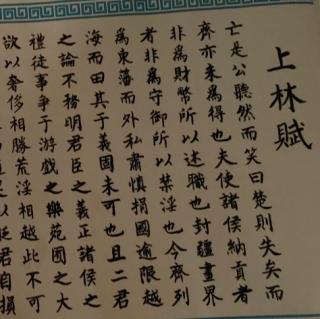 上林賦
亡是公聽然而笑曰楚則失矣而
齊亦未爲得也夫使諸侯納貢者
非爲財幣所以述職也封疆畫界
者非爲守御所以禁淫也今齊列
爲東藩而外私肅慎捐國逾限越
海而田其于義固未可也且二君
之論不務明君臣之義正諸侯之
禮徒事爭于游戲之樂苑囿之大
欲以奢侈相勝荒淫相越此不可
足以貶君自損